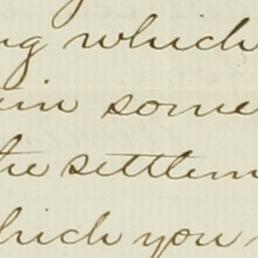 ng which
in some
the settlem
which you